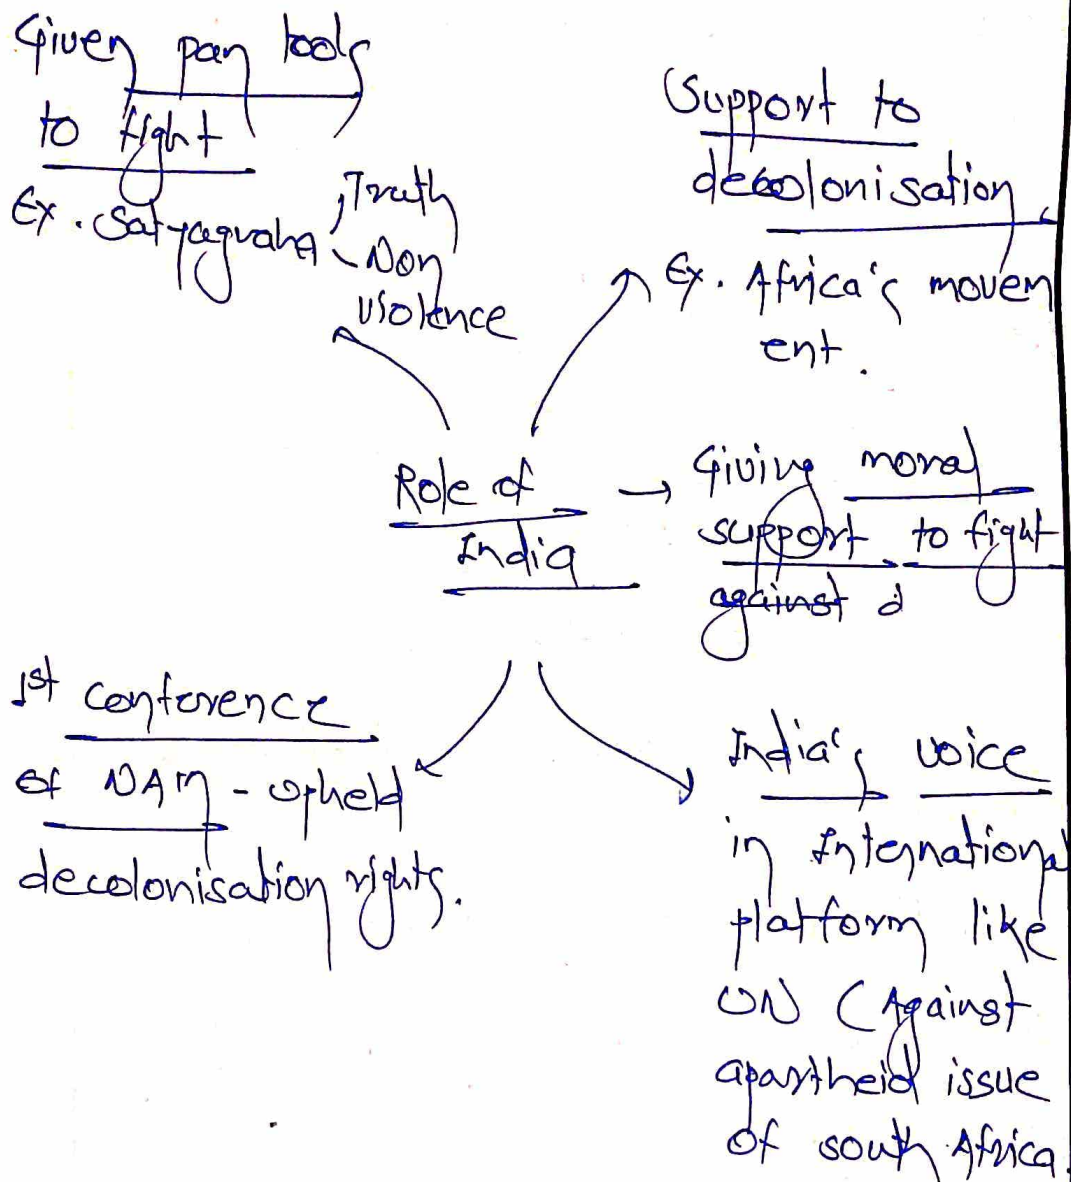 Given pan tools
to fight
Ex. Satyagraha
Truth
Non
violence
Support to
decolonisation
Ex. Africa's movem
ent.
Role of
India
Giving moral
support to fight
against d
1st conference
of NAM - upheld
decolonisation rights.
India's voice
in International
platform like
UN (Against
apartheid issue
of south Africa.